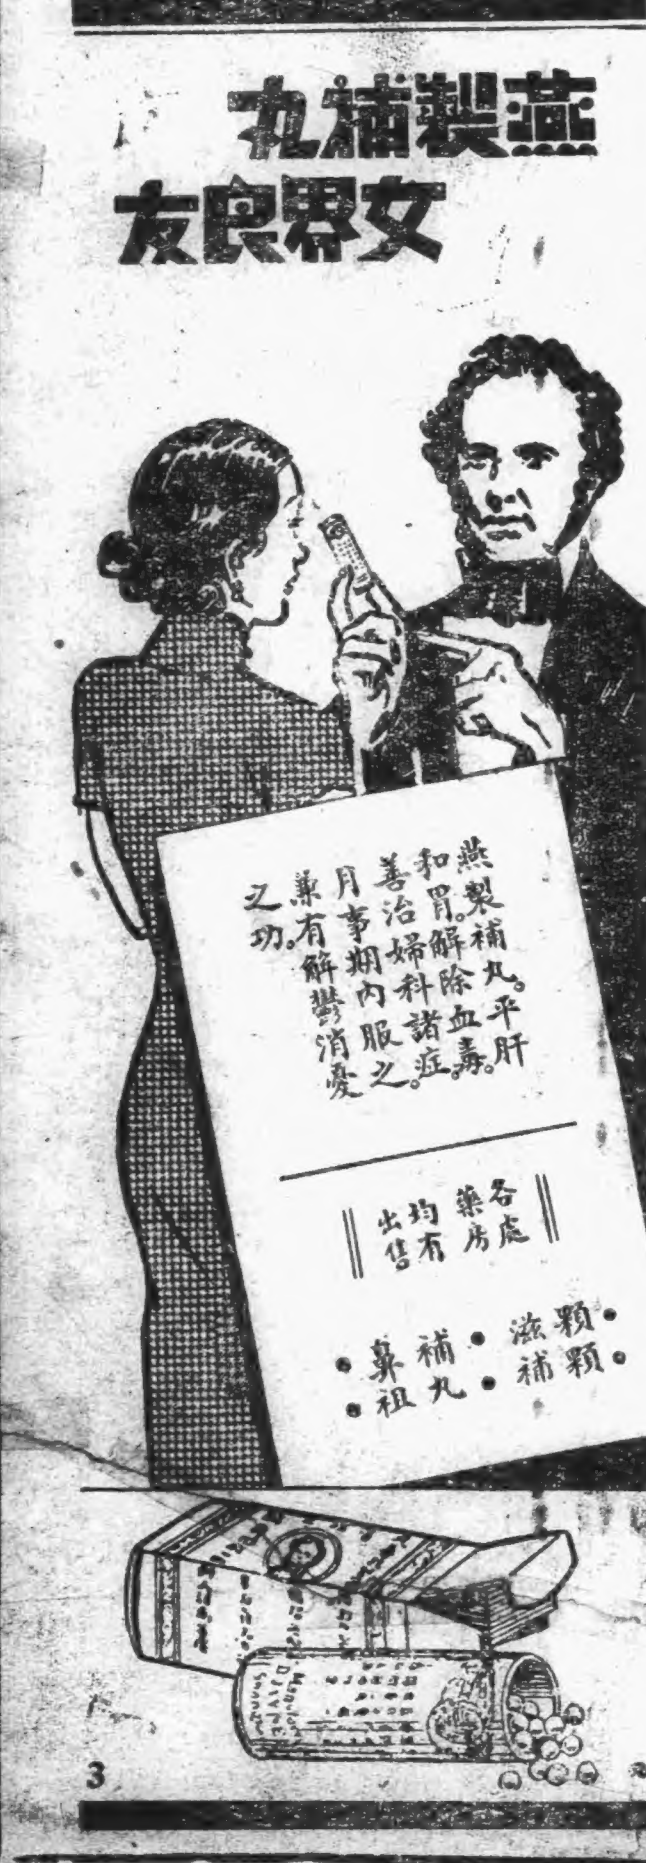 燕製補丸
女界良友
燕製補丸。平肝
和胃。解除血毒。
善治婦科諸症。
月事期內服之。
兼有解鬱消憂
之功。
各處
藥房
均有
出售。
顆顆
滋補
補丸
鼻祖
3